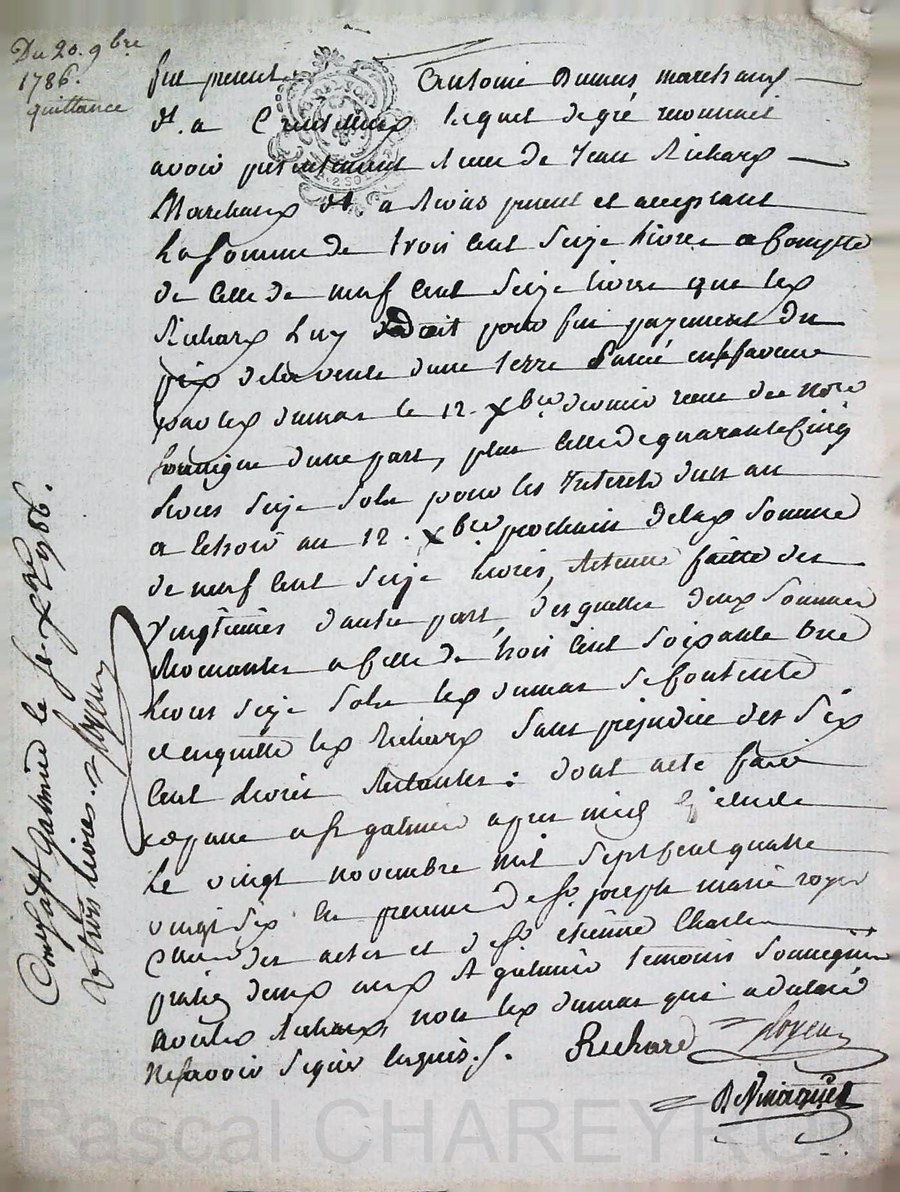 Du 20. 9bre
1786.
quittance
fut present Antoine Dumas marchand
dt. a lequel de gré reconnoit
avoir presentement receu de Jean Richard
Marchand dt a present et acceptant
la somme de trois cent seize livres a compte
de celle de neuf cent seize livres que led
Richard luy devoit pour fin payement du
prix de la vente d'une terre passée en sa faveur
par led dumas le 12. xbre dernier receue des notre
soussigné d'une part, plus celle de quarante cinq
livres seize sols pour les interets d'un an
a echoir au 12. xbre prochain de lad somme
de neuf cent seize livres, retenue faitte des
vingtiemes d'autre part, desquelles deux sommes
montantes a celle de trois cent soixante une
livres seize sols led dumas se contente
et en quitte led Richard sans prejudice des six
cent livres restantes : dont acte fait
et passé a st galmier apres midy etude
le vingt novembre mil sept cent quatre
vingt six en presence de sr. joseph marie royer
clerc des actes et de sr. etienne Charles
praticien deux aud st galmier temoins soussignés
avec led Richard, non led dumas qui a declaré
ne scavoir signer enquis .
Richard Royer
Controllé a st Galmier le xbre 1786.
Reçu trois livres.
Pascal CHAREYRON